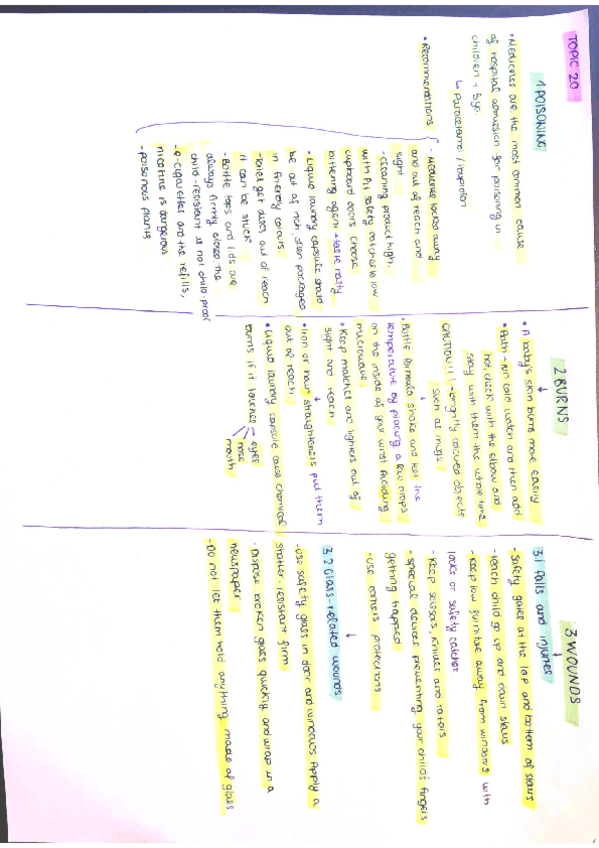 TOPIC 20
1 POISONING
• Medicines are the most common cause
of hospital admission for poisoning in
children < 5yo
↳ Paracetamol / Ibuprofen
• Recommendations
- Medicines locked away
and out of reach and
sight
- Cleaning product high,
with fit safety catches to low
cupboard doors. Choose
bittering agent → taste nasty
• Liquid laundry capsule should
be out of rich, often packages
in friendly colours
- toilet get discs out of reach
it can be stuck
- Bottle tops and lids are
always firmly closed. The
child-resistant is not child-proof
- e-cigarettes and the refills,
nicotine is dangerous
- poisonous plants
2 BURNS
• A baby's skin burns more easily
• Bath - run cold water and then add
hot, check with the elbow and
stay with them the whole time
CAUTION!!! brightly coloured objects
such as mugs
• Bottle formula shake and test the
temperature by placing a few drops
on the inside of your wrist. Avoiding
microwave
• Keep matches and lighters out of
sight and reach
• Iron or hair straighteners put them
out of reach
• Liquid laundry capsule cause chemical
burns if it touches
eyes
nose
mouth
3 WOUNDS
3.1 Falls and injuries
- Safety gates at the top and bottom of stairs
- teach child go up and down stairs
- keep low furniture away from windows with
locks or safety catches
- Keep scissors, knives and razors
• special devices preventing your child's fingers
getting trapped
- use corners protections
3.2 Glass-related wounds
- Use safety glass in door and windows. Apply a
shatter-resistant firm
- Dispose broken glass quickly and wrap in a
newspaper
- Do not let them hold anything made of glass